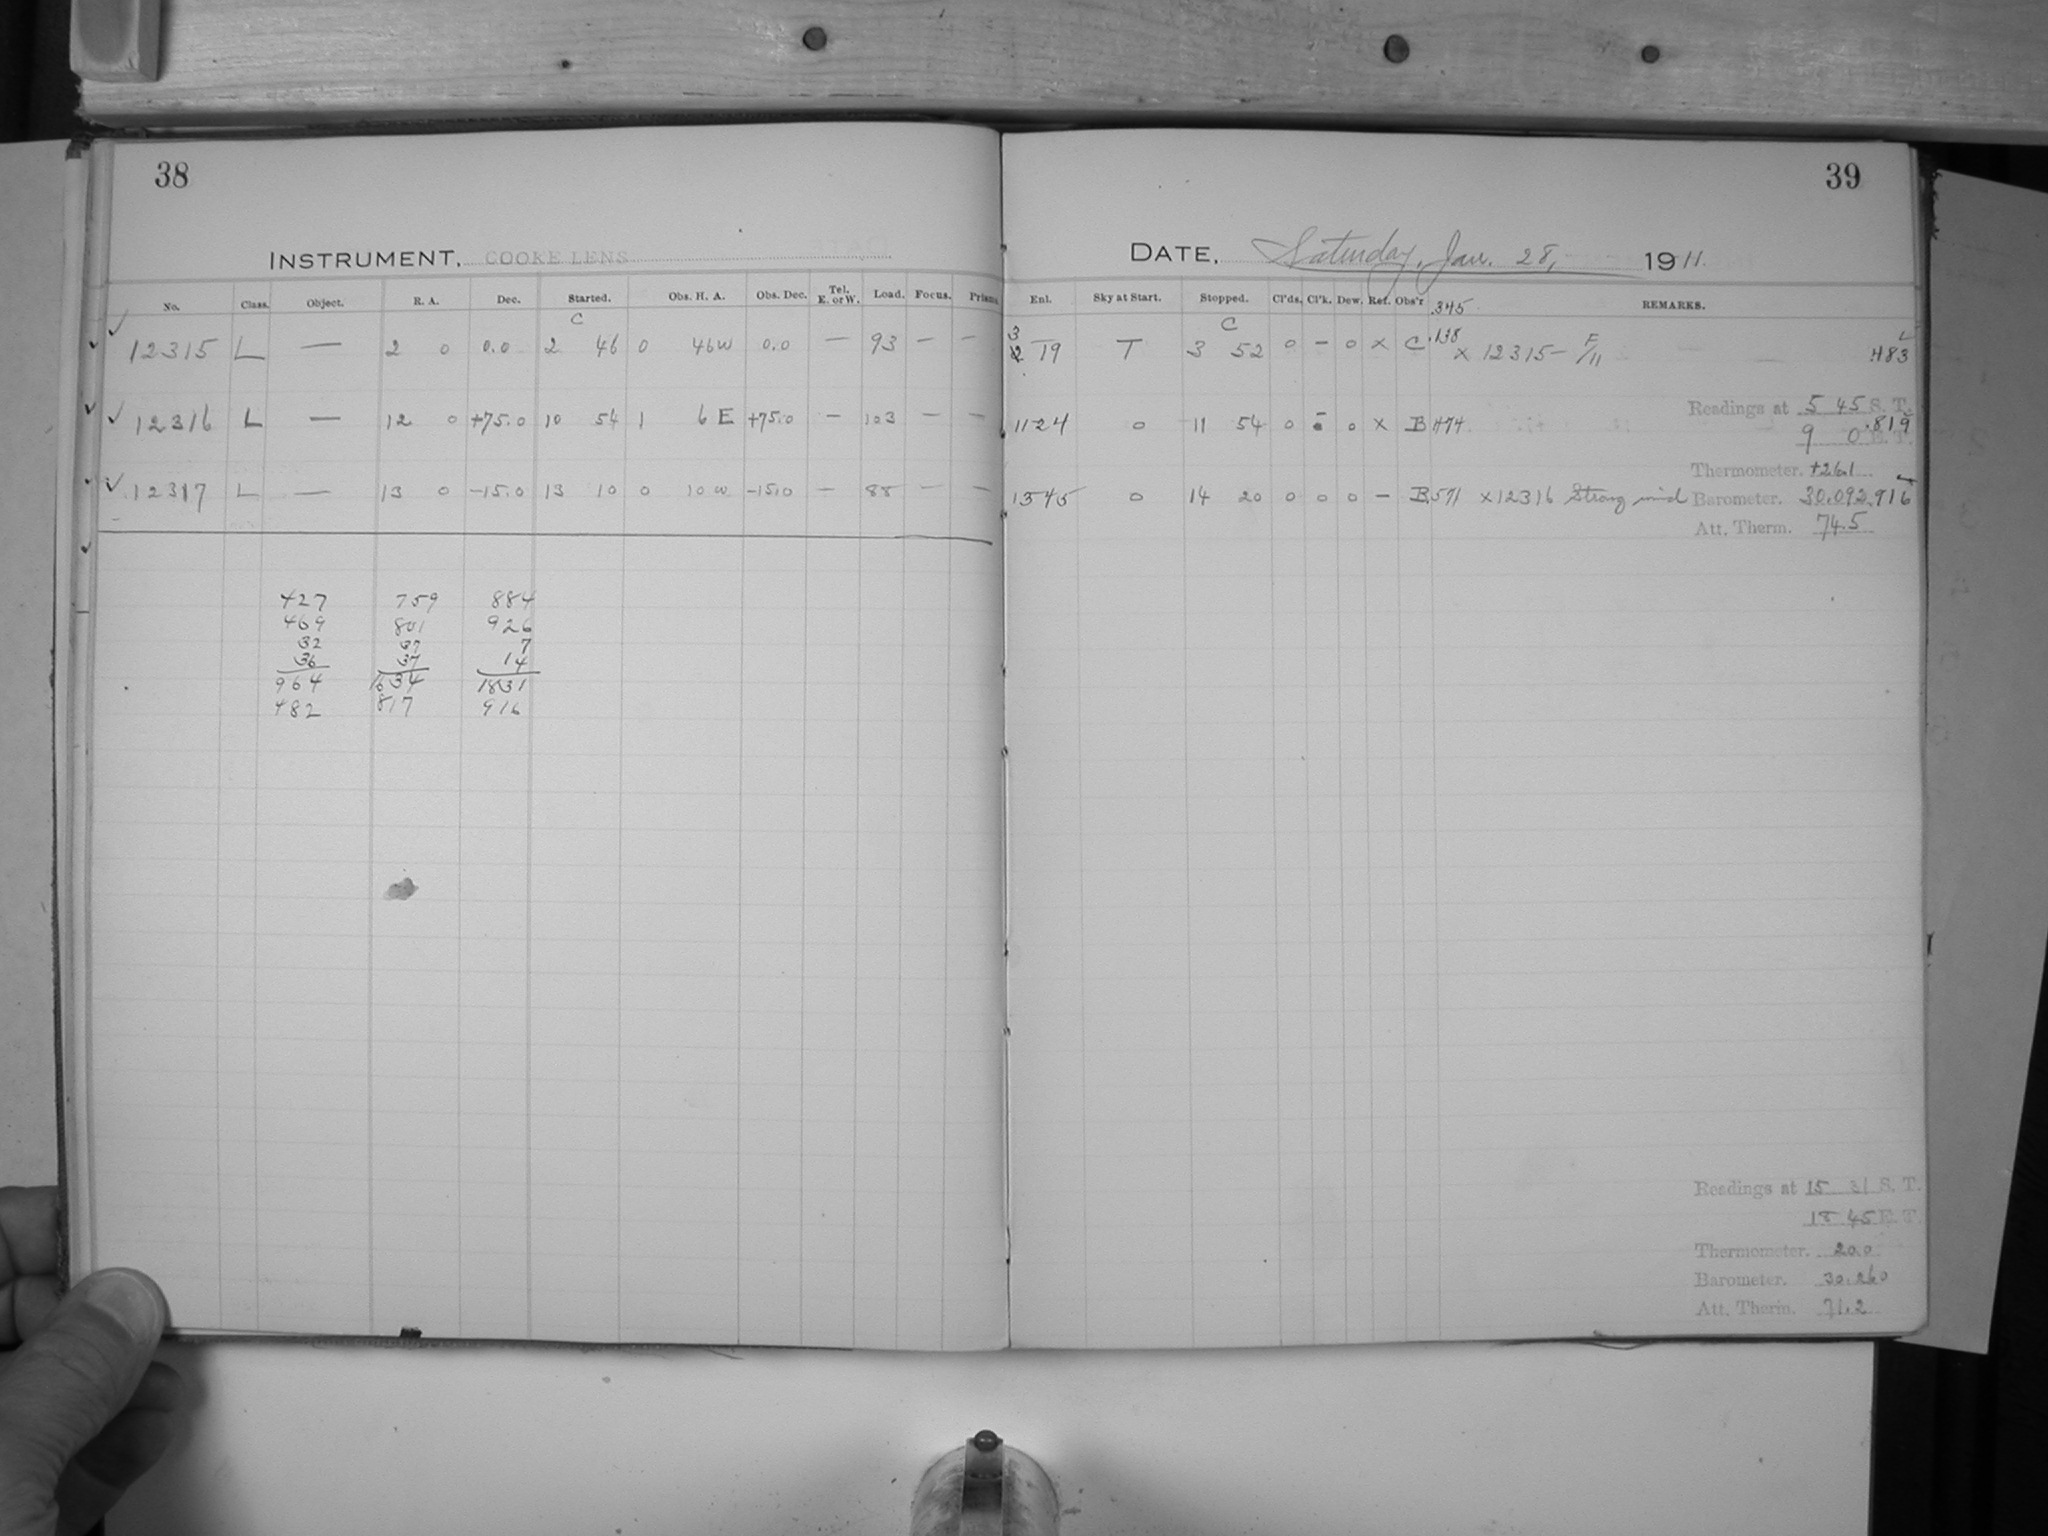 38
INSTRUMENT. COOKE LENS
No. Class. Object. R. A. Dec. Started. Obs. H. A. Obs. Dec. Tel. E. or W. Load. Focus. Prisms
C
12315 L — 2 0 0.0 2 46 0 46 W 0.0 — 93 — —
12316 L — 12 0 +75.0 10 54 1 6 E +75.0 — 103 — —
12317 L — 13 0 -15.0 13 10 0 10 W -15.0 — 88 — —
427 759 884
469 801 926
32 37 7
36 37 14
964 1634 1831
482 817 916
39
DATE. Saturday, Jan. 28, 1911.
Enl. Sky at Start. Stopped. Cl'ds. Cl'k. Dew. Ref. Obs'r REMARKS.
.345
C
3 19 T 3 52 0 – 0 x C .138 x 12315 – F/11 L .483
Readings at 5 45 S. T.
1124 0 11 54 0 0 x B .474 .819
9 0 E. T.
Thermometer. +26.1
1345 0 14 20 0 0 0 – B .571 x 12316 Strong wind
Barometer. 30.092 .916
Att. Therm. 74.5
Readings at 15 31 S. T.
18 45 E. T.
Thermometer. 20.0
Barometer. 30.260
Att. Therm. 71.2